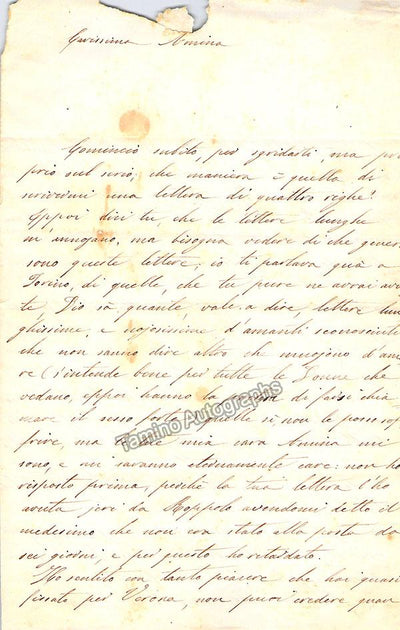 Carissima Amina
Comincio subito, per sgridarti, ma pro
prio sul serio, che maniera è quella di
scrivermi una lettera di quattro righe!
Eppoi dici tu, che le lettere lunghe
m'annojano, ma bisogna vedere di che genere
sono queste lettere; io ti parlava quà a
Torino, di quelle, che tu pure ne avrai avu
te, Dio sà quante, vale a dire, lettere lun
ghissime, e nojosissime d'amanti sconosciuti
che non sanno dire altro che muojono d'amo
re (s'intende bene per tutte le Donne che
vedano, eppoi hanno la di farsi chia
mare il sesso forte) quelle si, non le posso sof
frire ma le tue mia cara Amina mi
sono, e mi saranno eternamente care: non ho
risposto prima, perchè la tua lettera l'ho
avuta, jeri da Roppolo avendomi detto il
medesimo che non era stato alla posta da
sei giorni, e per questo ho ritardato.
Ho sentito con tanto piacere che hai quasi
fissato per Verona, non puoi credere quan
Tamino Autographs